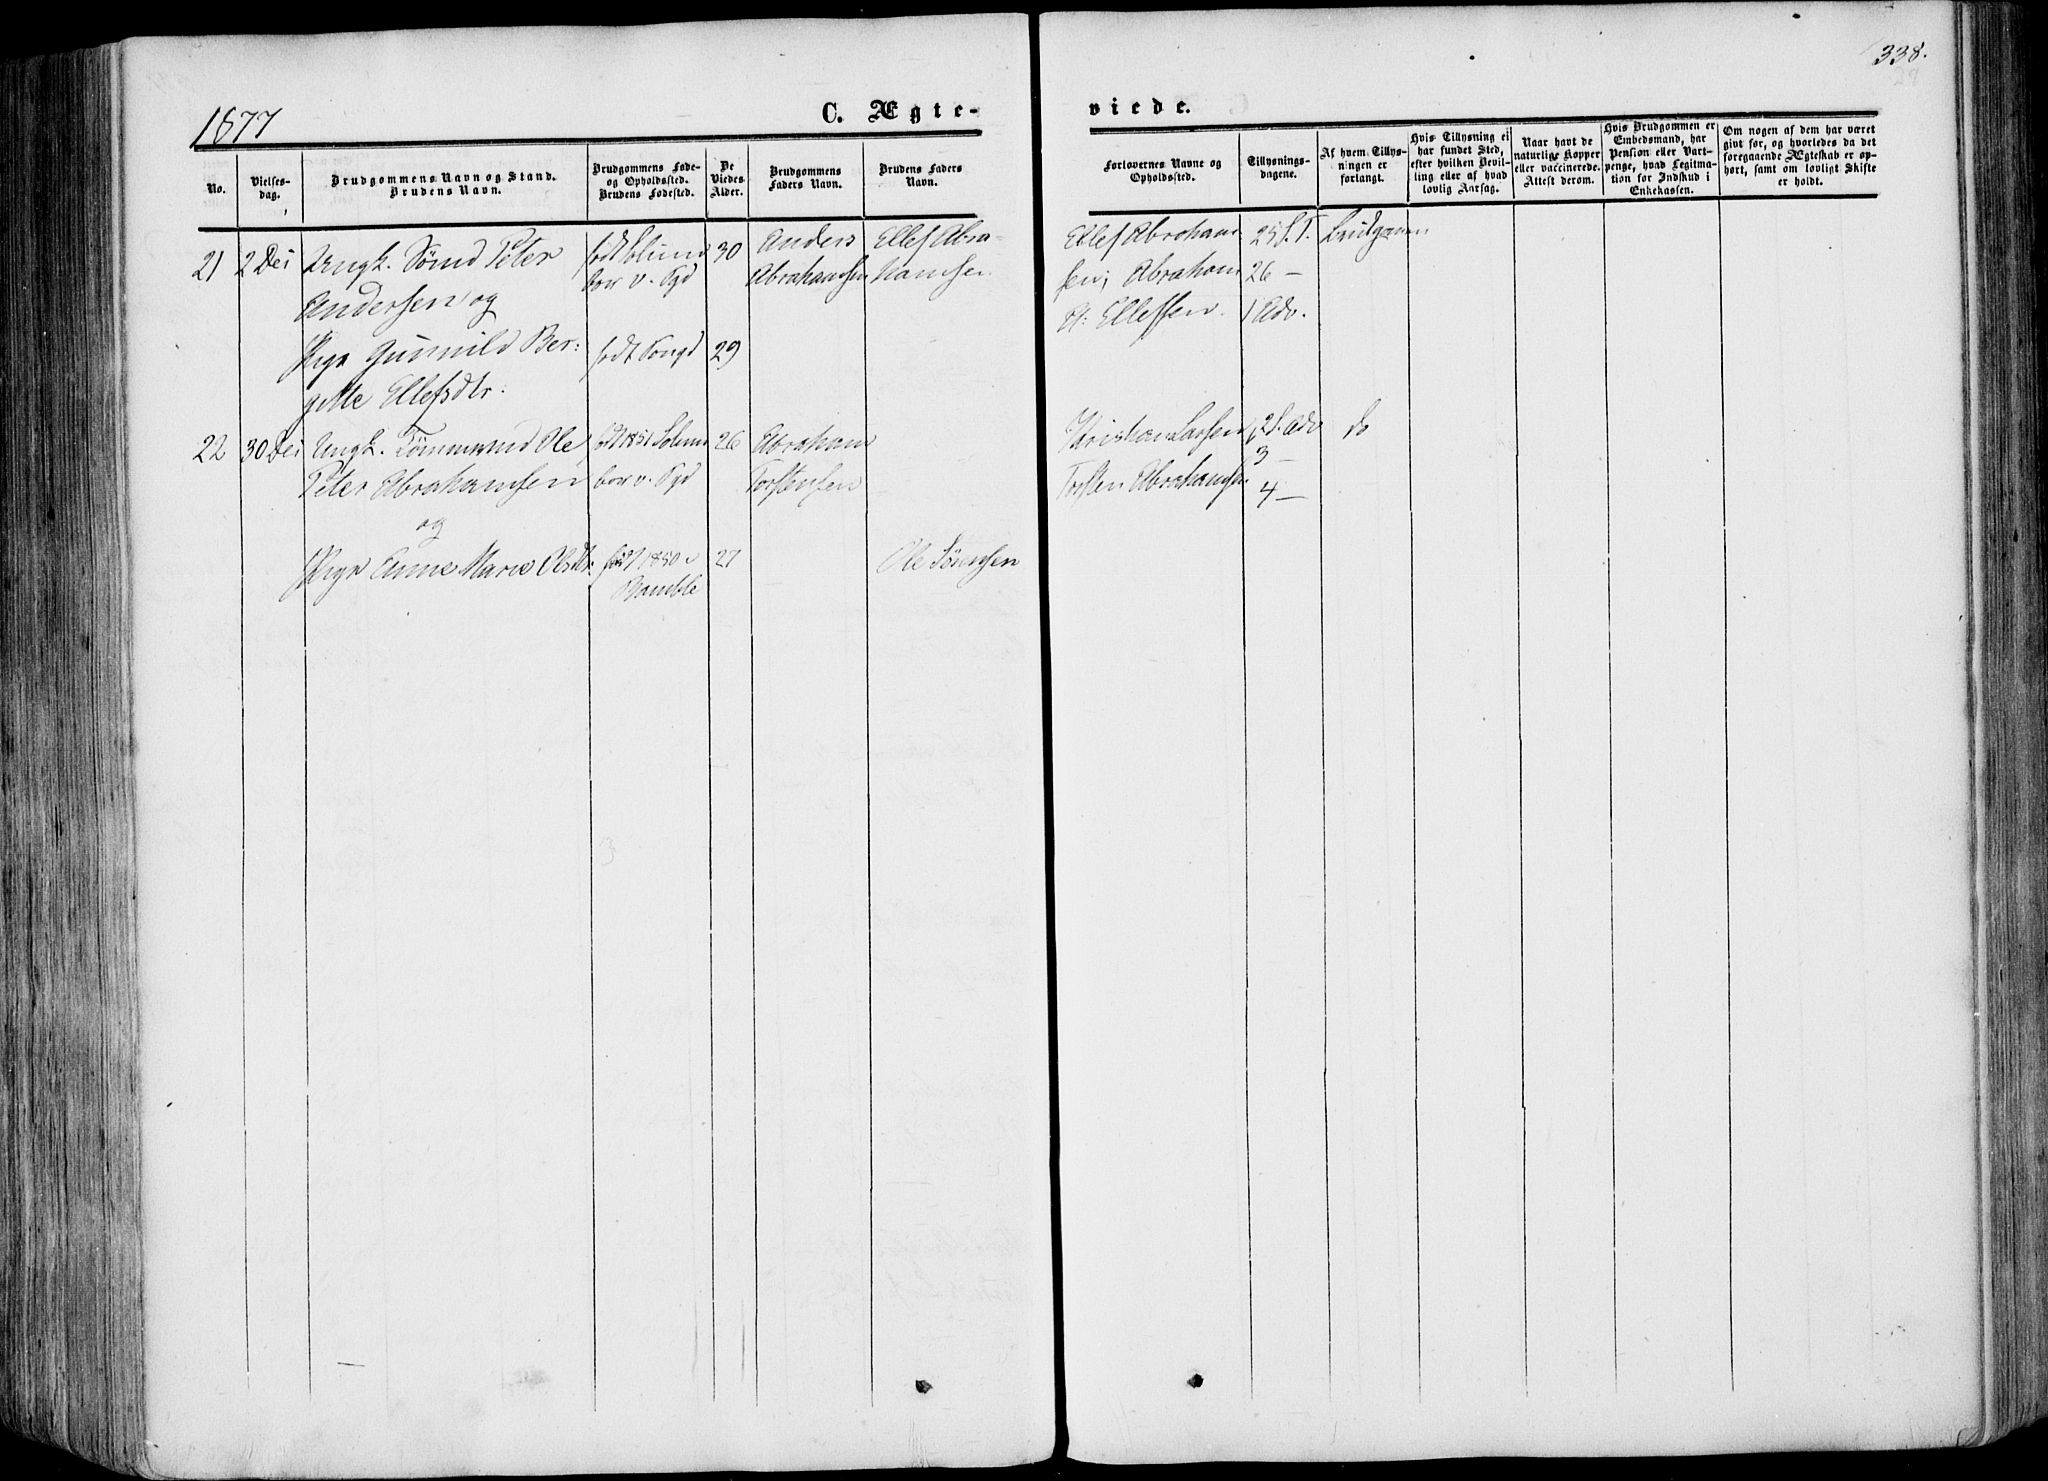 338.
1877
C. Ægte-
viede.
No.
Vielses-
dag.
Brudgommens Navn og Stand.
Brudens Navn.
Brudgommens Føde-
og Opholdssted.
Brudens Fødested.
De
Viedes
Alder.
Brudgommens
Faders Navn.
Brudens Faders
Navn.
Forlovernes Navne og
Opholdssted.
Tillysnings-
dagene.
Af hvem Tillys-
ningen er
forlangt.
Hvis Tillysning ei
har fundet Sted,
efter hvilken Bevil-
ling eller af hvad
lovlig Aarsag.
Naar havt de
naturlige Kopper
eller vaccinerede.
Attest derom.
Hvis Brudgommen er
Embedsmand, har
Pension eller Vart-
penge, hvad Legitima-
tion for Indskud i
Enkekassen.
Om nogen af dem har været
givt før, og hvorledes da det
foregaaende Ægteskab er op-
hørt, samt om lovligt Skifte
er holdt.
21
2 Dei
Ungk. Sømd Peter
Andersen og
født
boer v.
30
Anders
Abrahamsen
Ellef Abra-
hamsen
Ellef Abraham-
sen; Abraham
H: Ellefsen.
25 S. T.
26 —
1 Adv.
Brudgommen
Pige Gunnild Ber:
gitte Ellefsdtr.
født
29
22
30 Dei
Ungk. Tømmermd Ole
Peter Abrahamsen
og
født 1851 Solum
boer v.
26
Abraham
Torstensen
Kristian Larsen
Torsten Abrahamsen
2 S. Adv
3 —
4 —
do
Pige Anne Marie Olsdtr.
født 1850 i
Bamble
27
Ole Sørensen